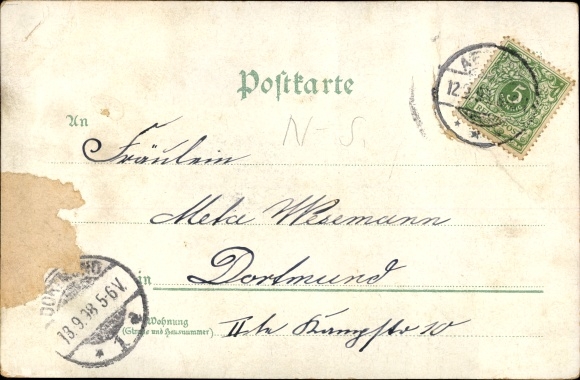 Postkarte
An
N-S.
Fräulein
Meta Wesemann
in Dortmund
Wohnung
(Straße und Hausnummer)
IIte Kampstr 10
5
DORTMUND
13.9.98 5-6V.
* 1 a